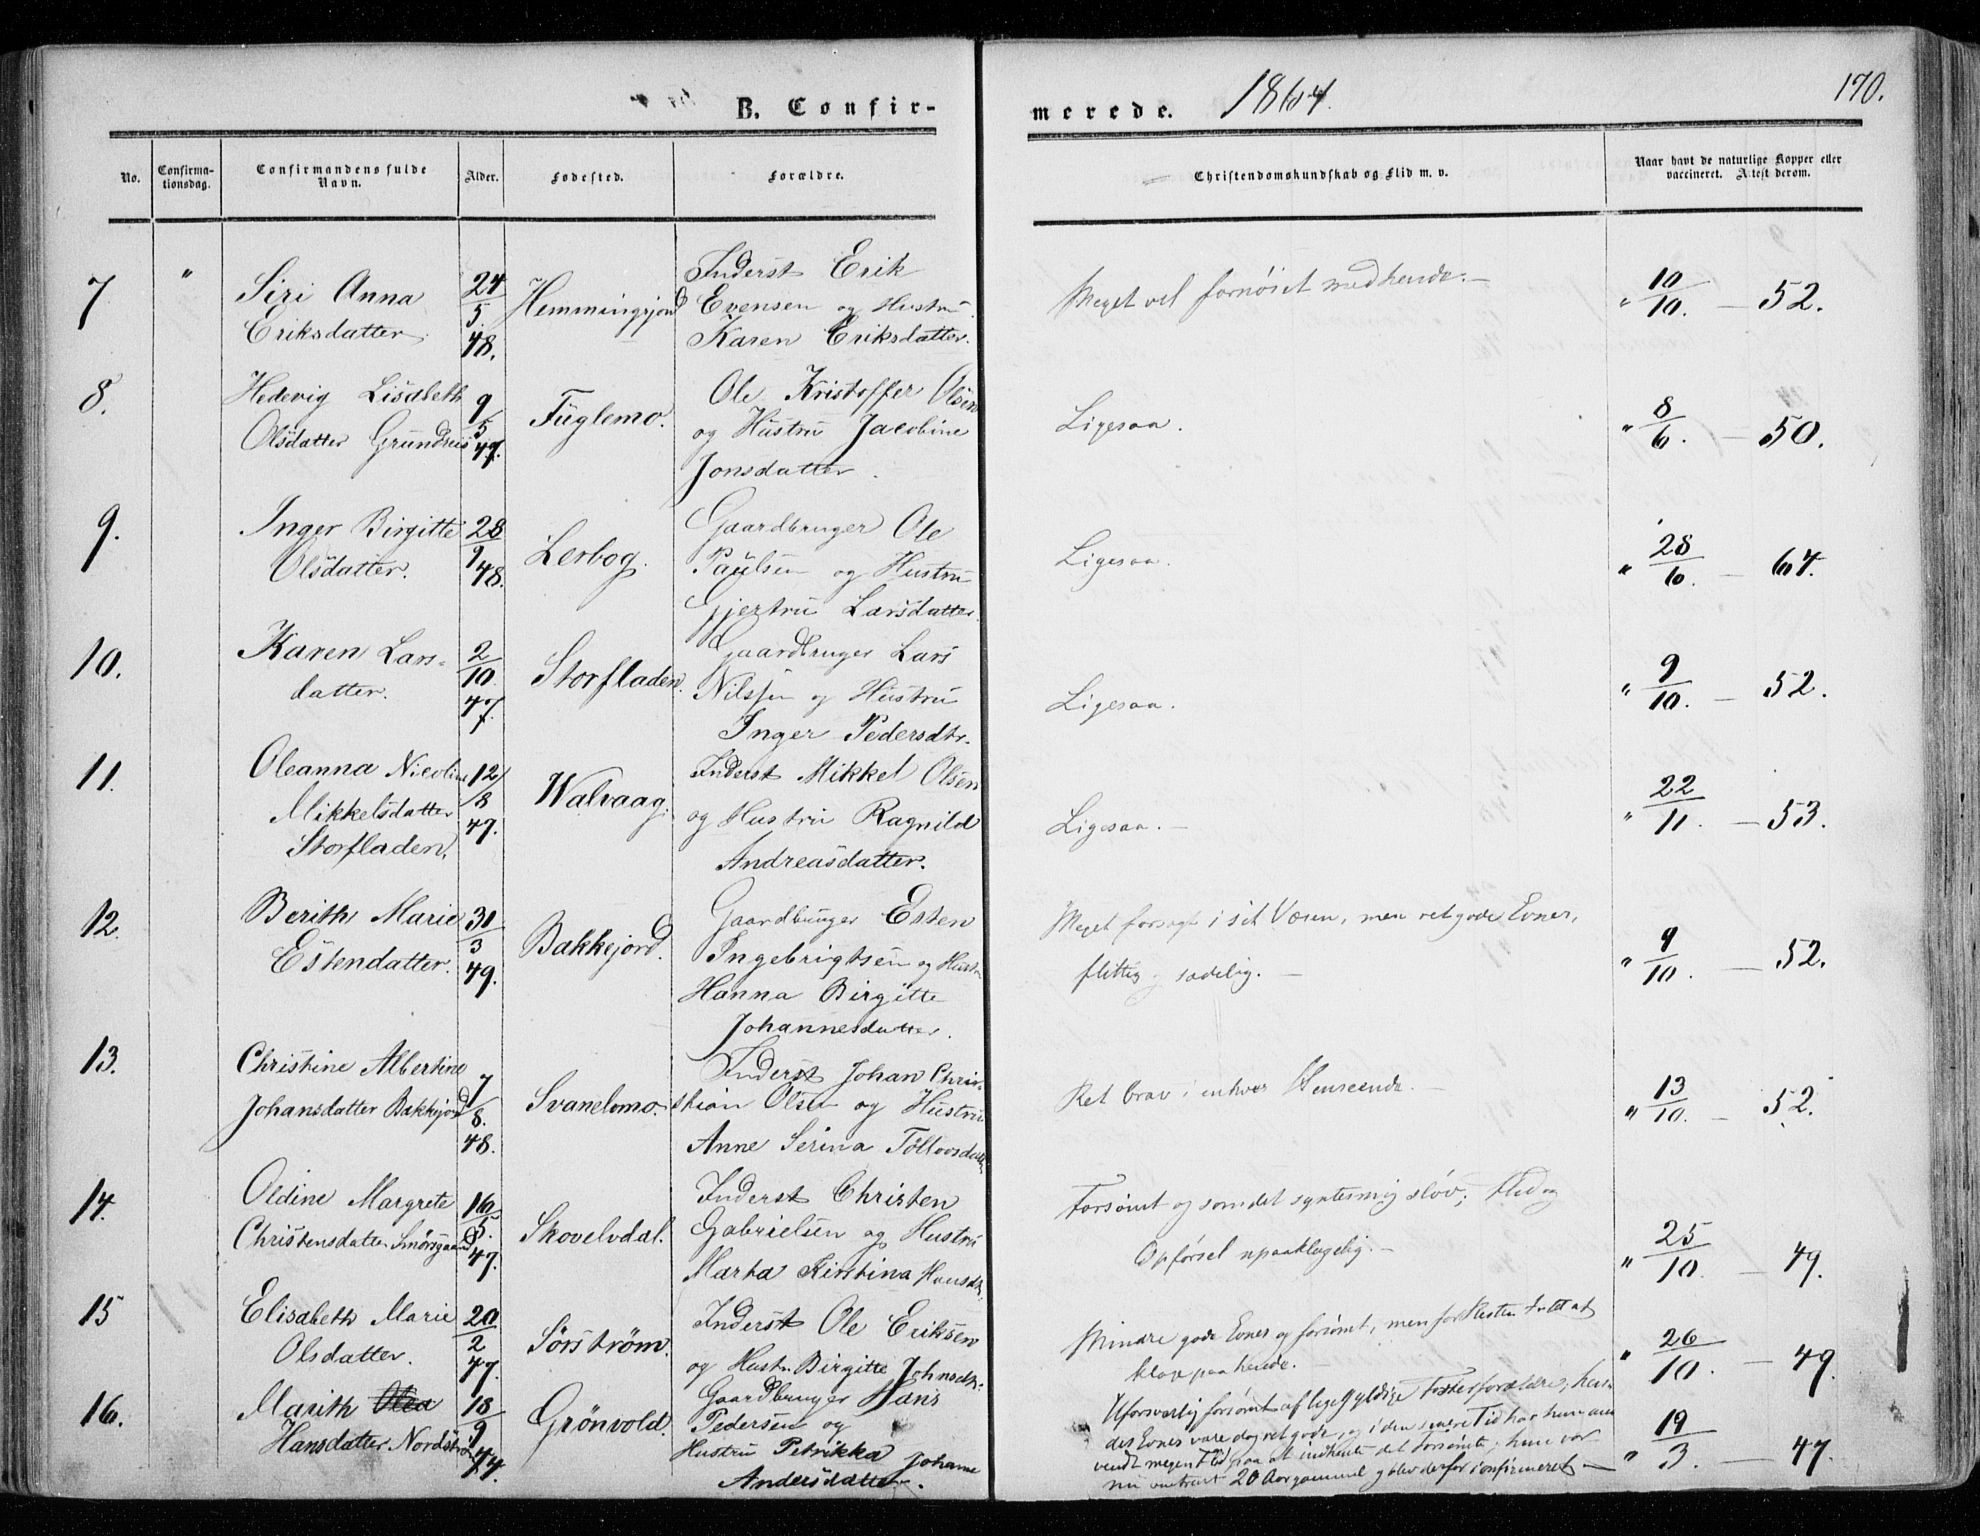 B. Confir-
merede. 1864.
170.
No.
Confirma-
tionsdag.
Confirmandens fulde
Navn.
Alder.
Fødested.
Forældre.
Christendomskundskab og Flid m. v.
Naar havt de naturlige Kopper eller
vaccineret. Attest derom.
7 " Siri Anna Eriksdatter. 24/5 48. Hemmingsjord
Inderst Erik
Evensen og Hustru
Karen Eriksdatter.
Meget vel fornøiet med hende. —
" 10/10. — 52.
8. Hedevig Lisabeth
Olsdatter Grundnes 9/5 47. Fuglemo.
Ole Kristoffer Olsen
og Hustru Jacobine
Jonsdatter.
Ligesaa.
" 8/6. — 50.
9. Inger Birgitte
Olsdatter. 28/9 48. Lerbog.
Gaardbruger Ole
Paulsen og Hustru
Gjertru Larsdatter
Ligesaa.
" 28/6. — 64.
10. Karen Lars-
datter. 2/10 47. Storfladen.
Gaardbruger Lars
Nilssen og Hustru
Inger Pedersdtr.
Ligesaa.
" 9/10. — 52.
11. Oleanna Nicoline
Mikkelsdatter
Storfladen. 12/8 47. Walvaag.
Inderst Mikkel Olsen
og Hustru Ragnild
Andreasdatter.
Ligesaa. —
" 22/11. — 53.
12. Berith Marie
Estendatter. 31/3 49. Bakkejord.
Gaardbruger Esten
Ingebrigtsen og Hustru
Hanna Birgitte
Johannesdatter.
Meget forsagt i sit Væsen, men ret gode Evner,
flittig og sædelig. —
" 9/10. — 52.
13. Christine Albertine
Johansdatter Bakkejord 7/8. 48. Svanelmo.
Inderst Johan Chris-
tian Olsen og Hustru
Anne Serina Tollovsdatter
Ret brav i enhver Henseende. —
" 13/10. — 52.
14. Oldine Margrete
Christensdatter Smörsgaard 16/5. 47. Skovelvdal.
Inderst Christen
Gabrielsen og Hustru
Marta Kirstina Hansdtr.
Forsømt og som det syntes mig sløv; Flid og
Opførsel upaaklagelig. —
" 25/10. — 49.
15 Elisabeth Marie
Olsdatter. 20/2 47. Sörström.
Inderst Ole Eriksen
og Hustr. Birgitte Johnsdtr.
Mindre gode Evner og forsømt, men for Resten Intet at
klage paa hende.
" 26/10. — 49.
16. Marith Olea
Hansdatter Nordström 18/9 44. Grönvold.
Gaardbruger Hans
Pedersen og
Hustru Petrikka Johanne
Andersdatter.
Uforsvarlig forsømt af ligegyldige Fosterforældre; hen-
des Evner vare dog ret gode, og i den senere Tid har hun an-
vendt megen Flid paa at indhente det Forsømte; hun var
nu omtrent 20 Aar gammel og blev derfor confirmeret —
" 19/3. — 47.